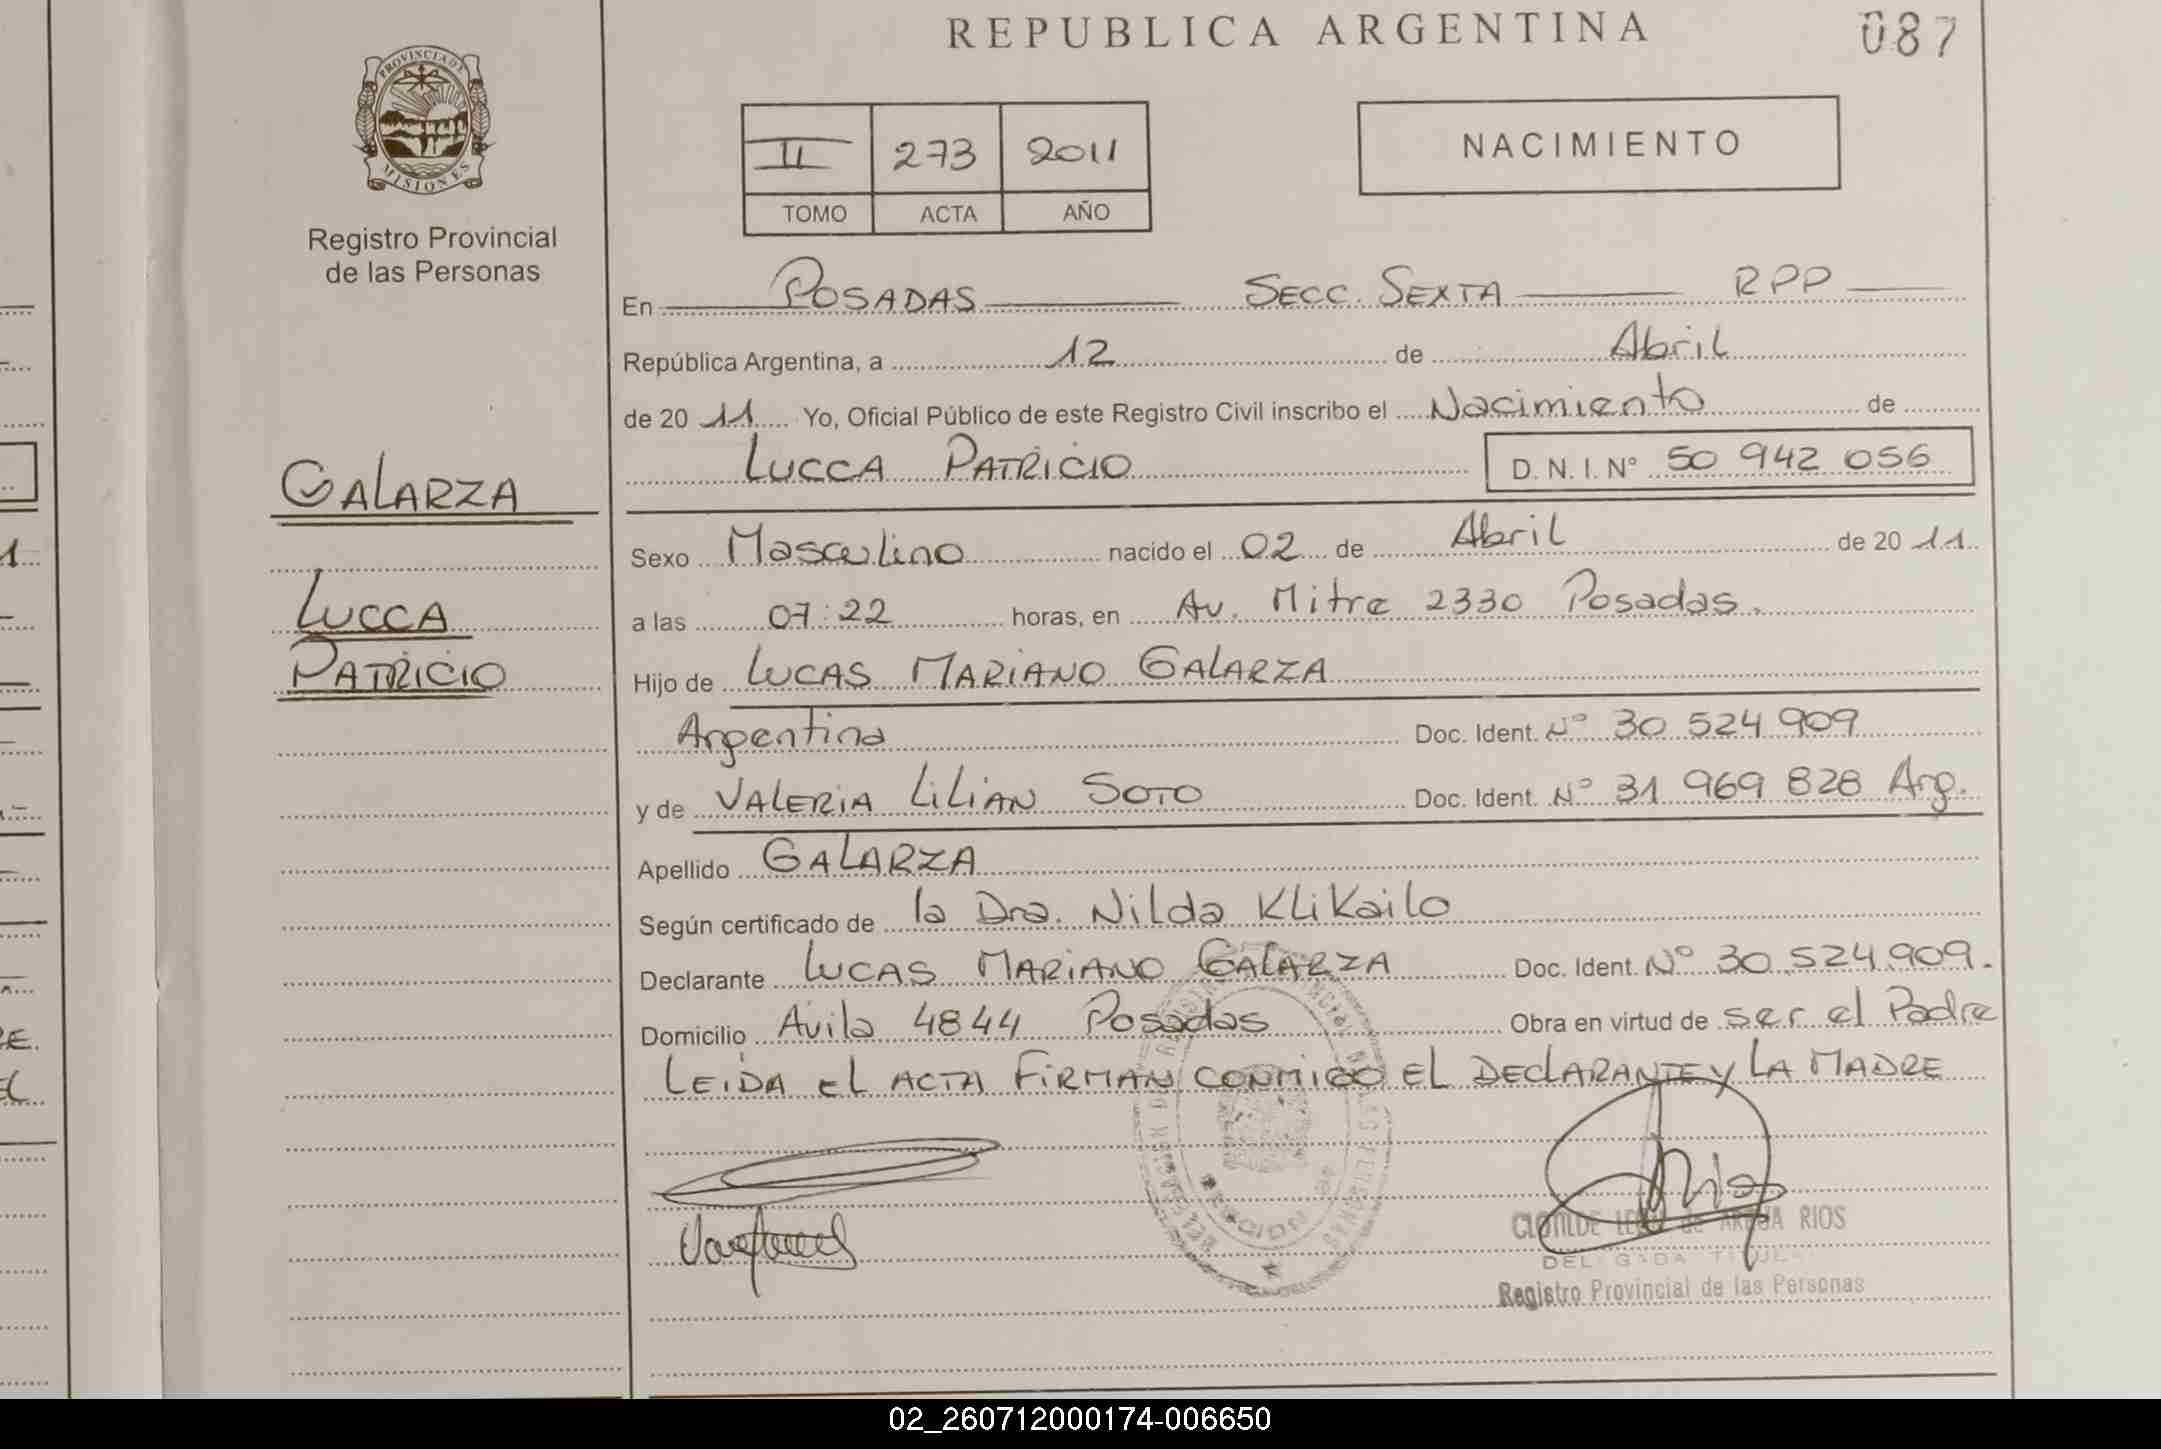 REPUBLICA ARGENTINA
087
PROVINCIA DE MISIONES
Registro Provincial
de las Personas
II 273 2011
TOMO ACTA AÑO
NACIMIENTO
En POSADAS SECC. SEXTA RPP
República Argentina, a 12 de Abril
de 20 11 Yo, Oficial Público de este Registro Civil inscribo el Nacimiento de
LUCCA PATRICIO D. N. I. N° 50 942 056
GALARZA
LUCCA
PATRICIO
Sexo Masculino nacido el 02 de Abril de 20 11
a las 07:22 horas, en Av. Mitre 2330 Posadas.
Hijo de LUCAS MARIANO GALARZA
Argentina Doc. Ident. N° 30 524 909
y de VALERIA LILIAN SOTO Doc. Ident. N° 31 969 828 Arg.
Apellido GALARZA
Según certificado de la Dra. Nilda KliKailo
Declarante LUCAS MARIANO GALARZA Doc. Ident. N° 30.524.909.
Domicilio Avila 4844 Posadas Obra en virtud de ser el Padre
LEIDA EL ACTA FIRMAN CONMIGO EL DECLARANTE Y LA MADRE
CLOTILDE de RIOS
Registro Provincial de las Personas
02_260712000174-006650